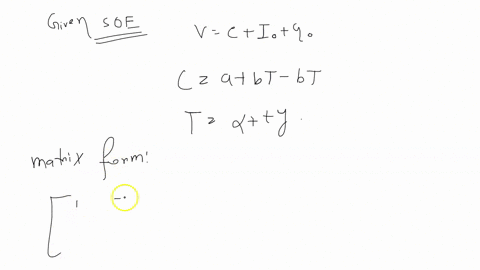 Given SOE
V = C + I₀ + G₀
C = a + bT - bT
T = α + ty.
matrix form:
[ 1 -